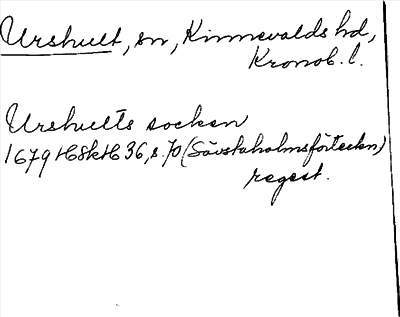 Urshult, sn, Kinnevalds hd,
Kronob. l.
Urshults socken
1679 HSkH 36, s. 70 (Sävstaholmsförteckn)
regest.